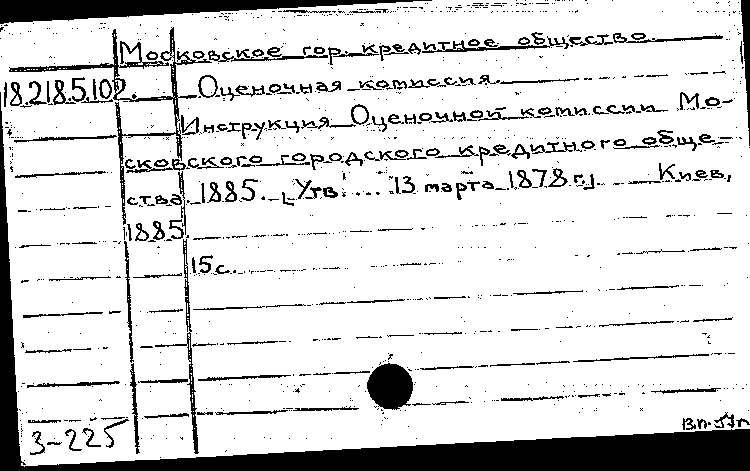 Московское гор. кредитное общество.
18.218.5.102. Оценочная комиссия.
Инструкция Оценочной комиссии Мо-
сковского городского кредитного обще-
ства. 1885. [Утв. ... 13 марта 1878 г.]. Киев,
1885.
15 с.
3-225
В.п.